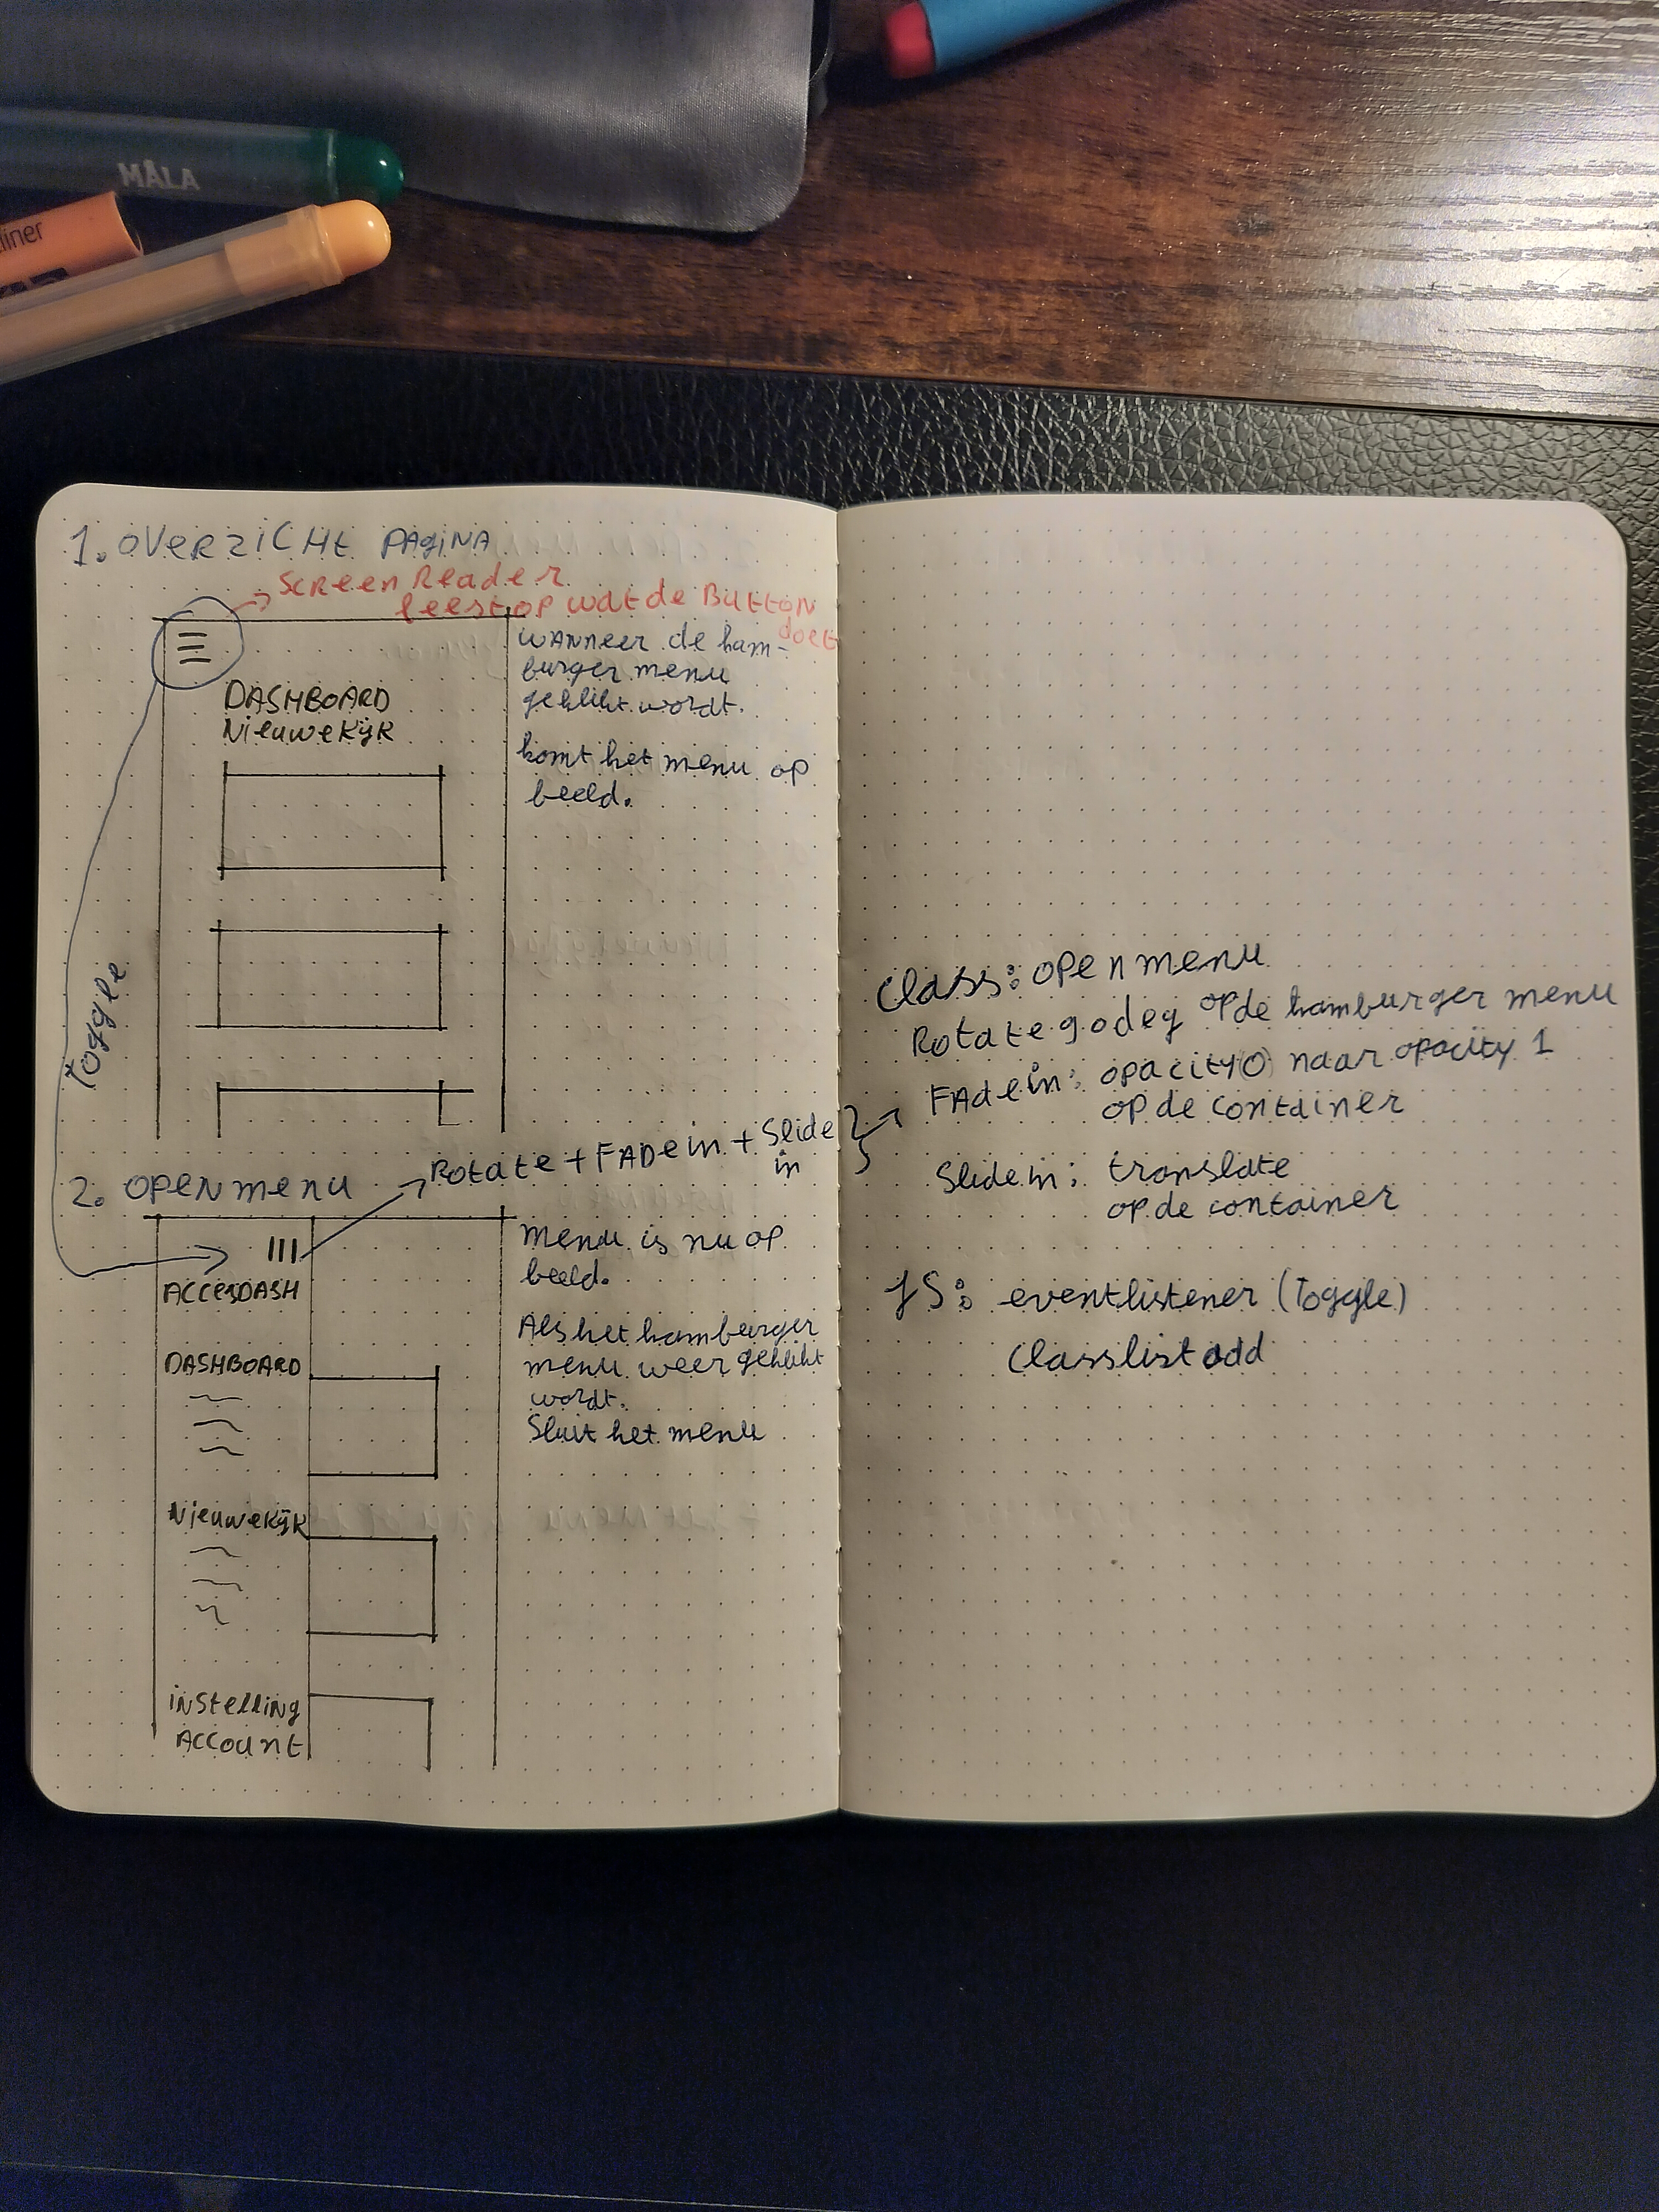 MÅLA
liner
1. OVERZICHT PAGINA
SCREEN Reader
leest op wat de Button
doet
DASHBOARD
NieuweKijk
WANNeer de ham-
burger menu
geklikt wordt.
komt het menu op
beeld.
Toggle
2. OPEN menu
Rotate + FADE in + Slide
in
ACCESDASH
DASHBOARD
NieuweKijk
iNStelling
Account
menu is nu op
beeld.
Als het hamburger
menu weer geklikt
wordt.
Sluit het menu
Class: open menu
Rotate 90deg op de hamburger menu
FAde in: opacity 0 naar opacity 1
op de container
Slide in: translate
op de container
JS: eventlistener (Toggle)
Classlist add